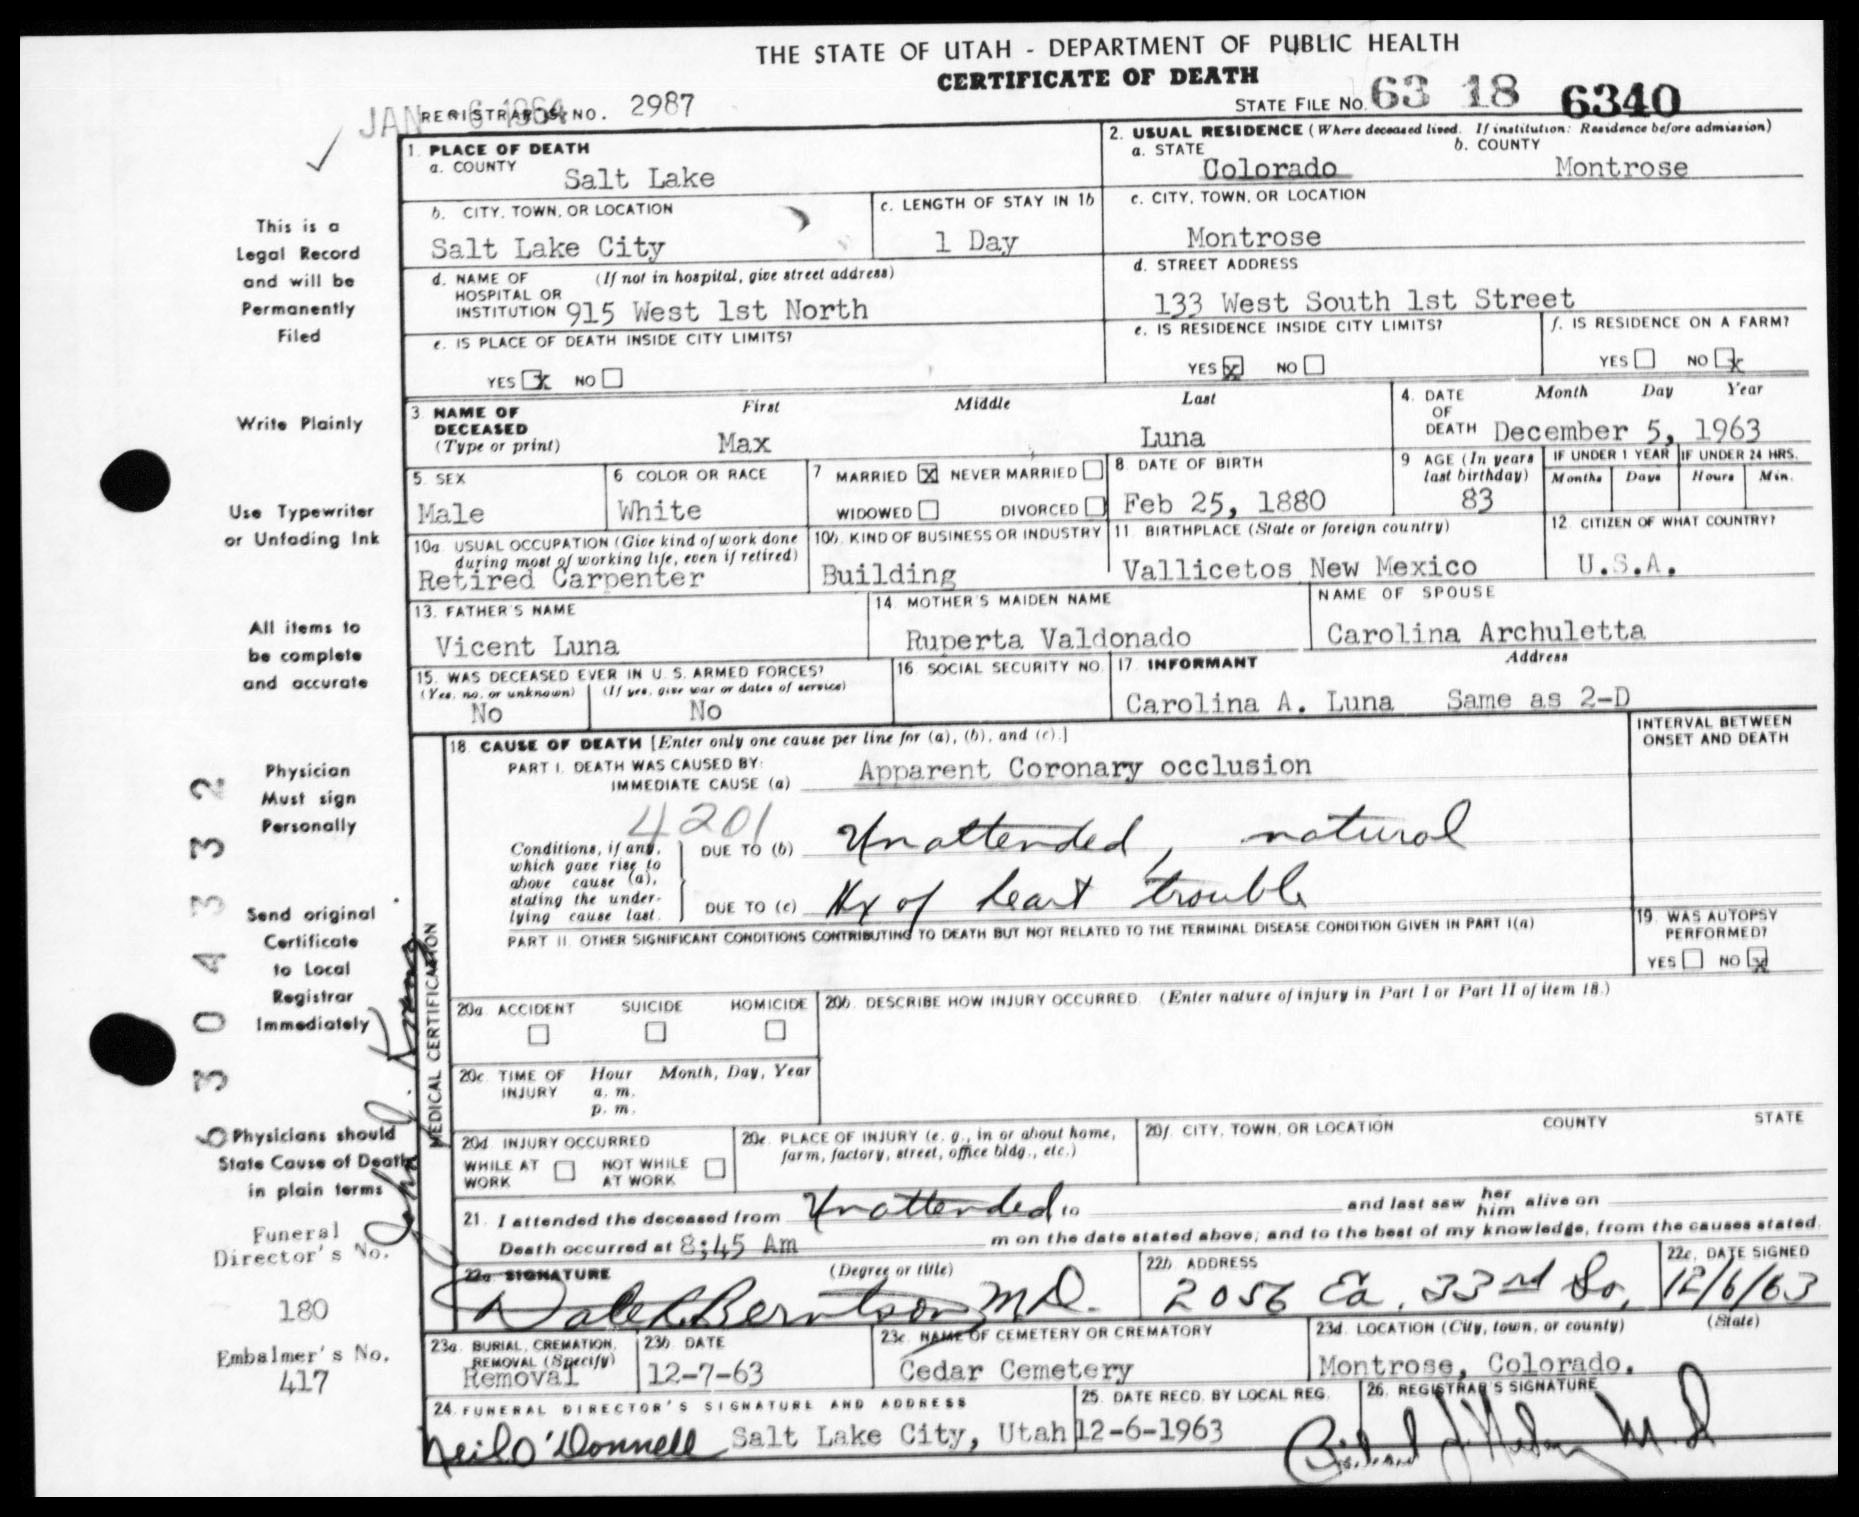 THE STATE OF UTAH - DEPARTMENT OF PUBLIC HEALTH
CERTIFICATE OF DEATH
JAN 6 1964
REGISTRAR'S NO. 2987
STATE FILE NO. 63 18 6340
1. PLACE OF DEATH
a. COUNTY Salt Lake
2. USUAL RESIDENCE (Where deceased lived. If institution: Residence before admission)
a. STATE Colorado b. COUNTY Montrose
b. CITY, TOWN, OR LOCATION Salt Lake City
c. LENGTH OF STAY IN 1b 1 Day
c. CITY, TOWN, OR LOCATION Montrose
d. NAME OF HOSPITAL OR INSTITUTION (If not in hospital, give street address) 915 West 1st North
d. STREET ADDRESS 133 West South 1st Street
e. IS PLACE OF DEATH INSIDE CITY LIMITS? YES X NO
e. IS RESIDENCE INSIDE CITY LIMITS? YES X NO
f. IS RESIDENCE ON A FARM? YES NO X
3 NAME OF DECEASED (Type or print) First Middle Last
Max Luna
4. DATE OF DEATH Month Day Year
December 5, 1963
5. SEX Male
6 COLOR OR RACE White
7 MARRIED X NEVER MARRIED
WIDOWED DIVORCED
8 DATE OF BIRTH Feb 25, 1880
9 AGE (In years last birthday) 83
IF UNDER 1 YEAR Months Days
IF UNDER 24 HRS. Hours Min.
10a. USUAL OCCUPATION (Give kind of work done during most of working life, even if retired)
Retired Carpenter
10b. KIND OF BUSINESS OR INDUSTRY Building
11. BIRTHPLACE (State or foreign country) Vallicetos New Mexico
12. CITIZEN OF WHAT COUNTRY? U.S.A.
13. FATHER'S NAME Vicent Luna
14. MOTHER'S MAIDEN NAME Ruperta Valdonado
NAME OF SPOUSE Carolina Archuletta
15. WAS DECEASED EVER IN U.S. ARMED FORCES?
(Yes, no, or unknown) No (If yes, give war or dates of service) No
16. SOCIAL SECURITY NO.
17. INFORMANT Address
Carolina A. Luna Same as 2-D
MEDICAL CERTIFICATION
18. CAUSE OF DEATH [Enter only one cause per line for (a), (b), and (c).]
INTERVAL BETWEEN ONSET AND DEATH
PART I. DEATH WAS CAUSED BY:
IMMEDIATE CAUSE (a) Apparent Coronary occlusion
4201
Conditions, if any, which gave rise to above cause (a), stating the underlying cause last.
DUE TO (b) Unattended, natural
DUE TO (c) Hx of heart trouble
PART II. OTHER SIGNIFICANT CONDITIONS CONTRIBUTING TO DEATH BUT NOT RELATED TO THE TERMINAL DISEASE CONDITION GIVEN IN PART I(a)
19. WAS AUTOPSY PERFORMED? YES NO X
20a. ACCIDENT SUICIDE HOMICIDE
20b. DESCRIBE HOW INJURY OCCURRED. (Enter nature of injury in Part I or Part II of item 18.)
20c. TIME OF INJURY Hour a. m. p. m. Month, Day, Year
20d. INJURY OCCURRED
WHILE AT WORK NOT WHILE AT WORK
20e. PLACE OF INJURY (e. g., in or about home, farm, factory, street, office bldg., etc.)
20f. CITY, TOWN, OR LOCATION COUNTY STATE
21. I attended the deceased from Unattended to and last saw her him alive on
Death occurred at 8:45 Am m on the date stated above; and to the best of my knowledge, from the causes stated.
22a. SIGNATURE (Degree or title)
Dale R Berntson M.D.
22b. ADDRESS 2056 Ea. 33rd So.
22c. DATE SIGNED 12/6/63
23a. BURIAL, CREMATION, REMOVAL (Specify) Removal
23b. DATE 12-7-63
23c. NAME OF CEMETERY OR CREMATORY Cedar Cemetery
23d. LOCATION (City, town, or county) (State)
Montrose, Colorado.
24. FUNERAL DIRECTOR'S SIGNATURE AND ADDRESS
Neil O'Donnell Salt Lake City, Utah
25. DATE RECD. BY LOCAL REG. 12-6-1963
26. REGISTRAR'S SIGNATURE
M.D
This is a
Legal Record
and will be
Permanently
Filed
Write Plainly
Use Typewriter
or Unfading Ink
All items to
be complete
and accurate
Physician
Must sign
Personally
Send original
Certificate
to Local
Registrar
Immediately
Physicians should
State Cause of Death
in plain terms
Funeral
Director's No.
180
Embalmer's No.
417
6304332